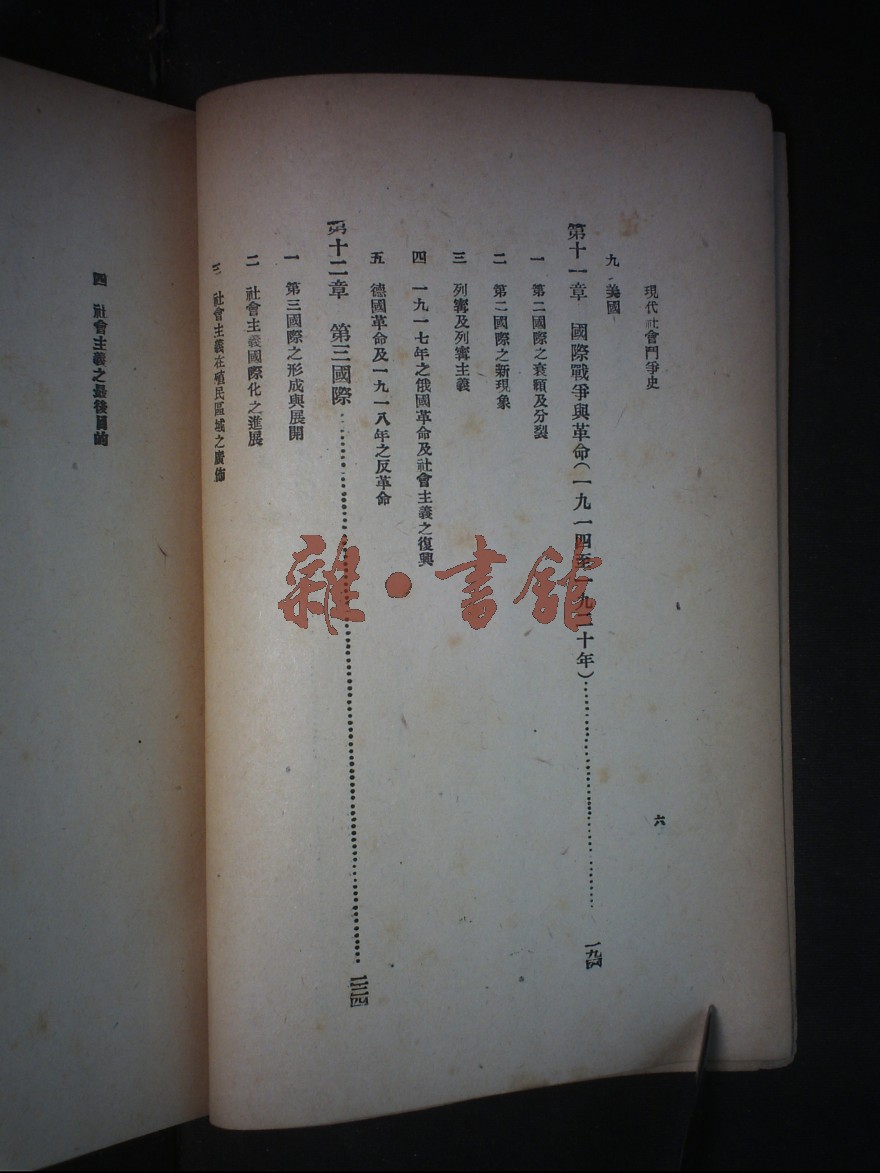 現代社會鬥爭史
六
九 美國
第十一章 國際戰爭與革命(一九一四至一九二十年)……一九四
一 第二國際之衰頹及分裂
二 第二國際之新現象
三 列寗及列寗主義
四 一九一七年之俄國革命及社會主義之復興
五 德國革命及一九一八年之反革命
第十二章 第三國際……二三四
一 第三國際之形成與展開
二 社會主義國際化之進展
三 社會主義在殖民區域之廣佈
四 社會主義之最後目的
雜·書館